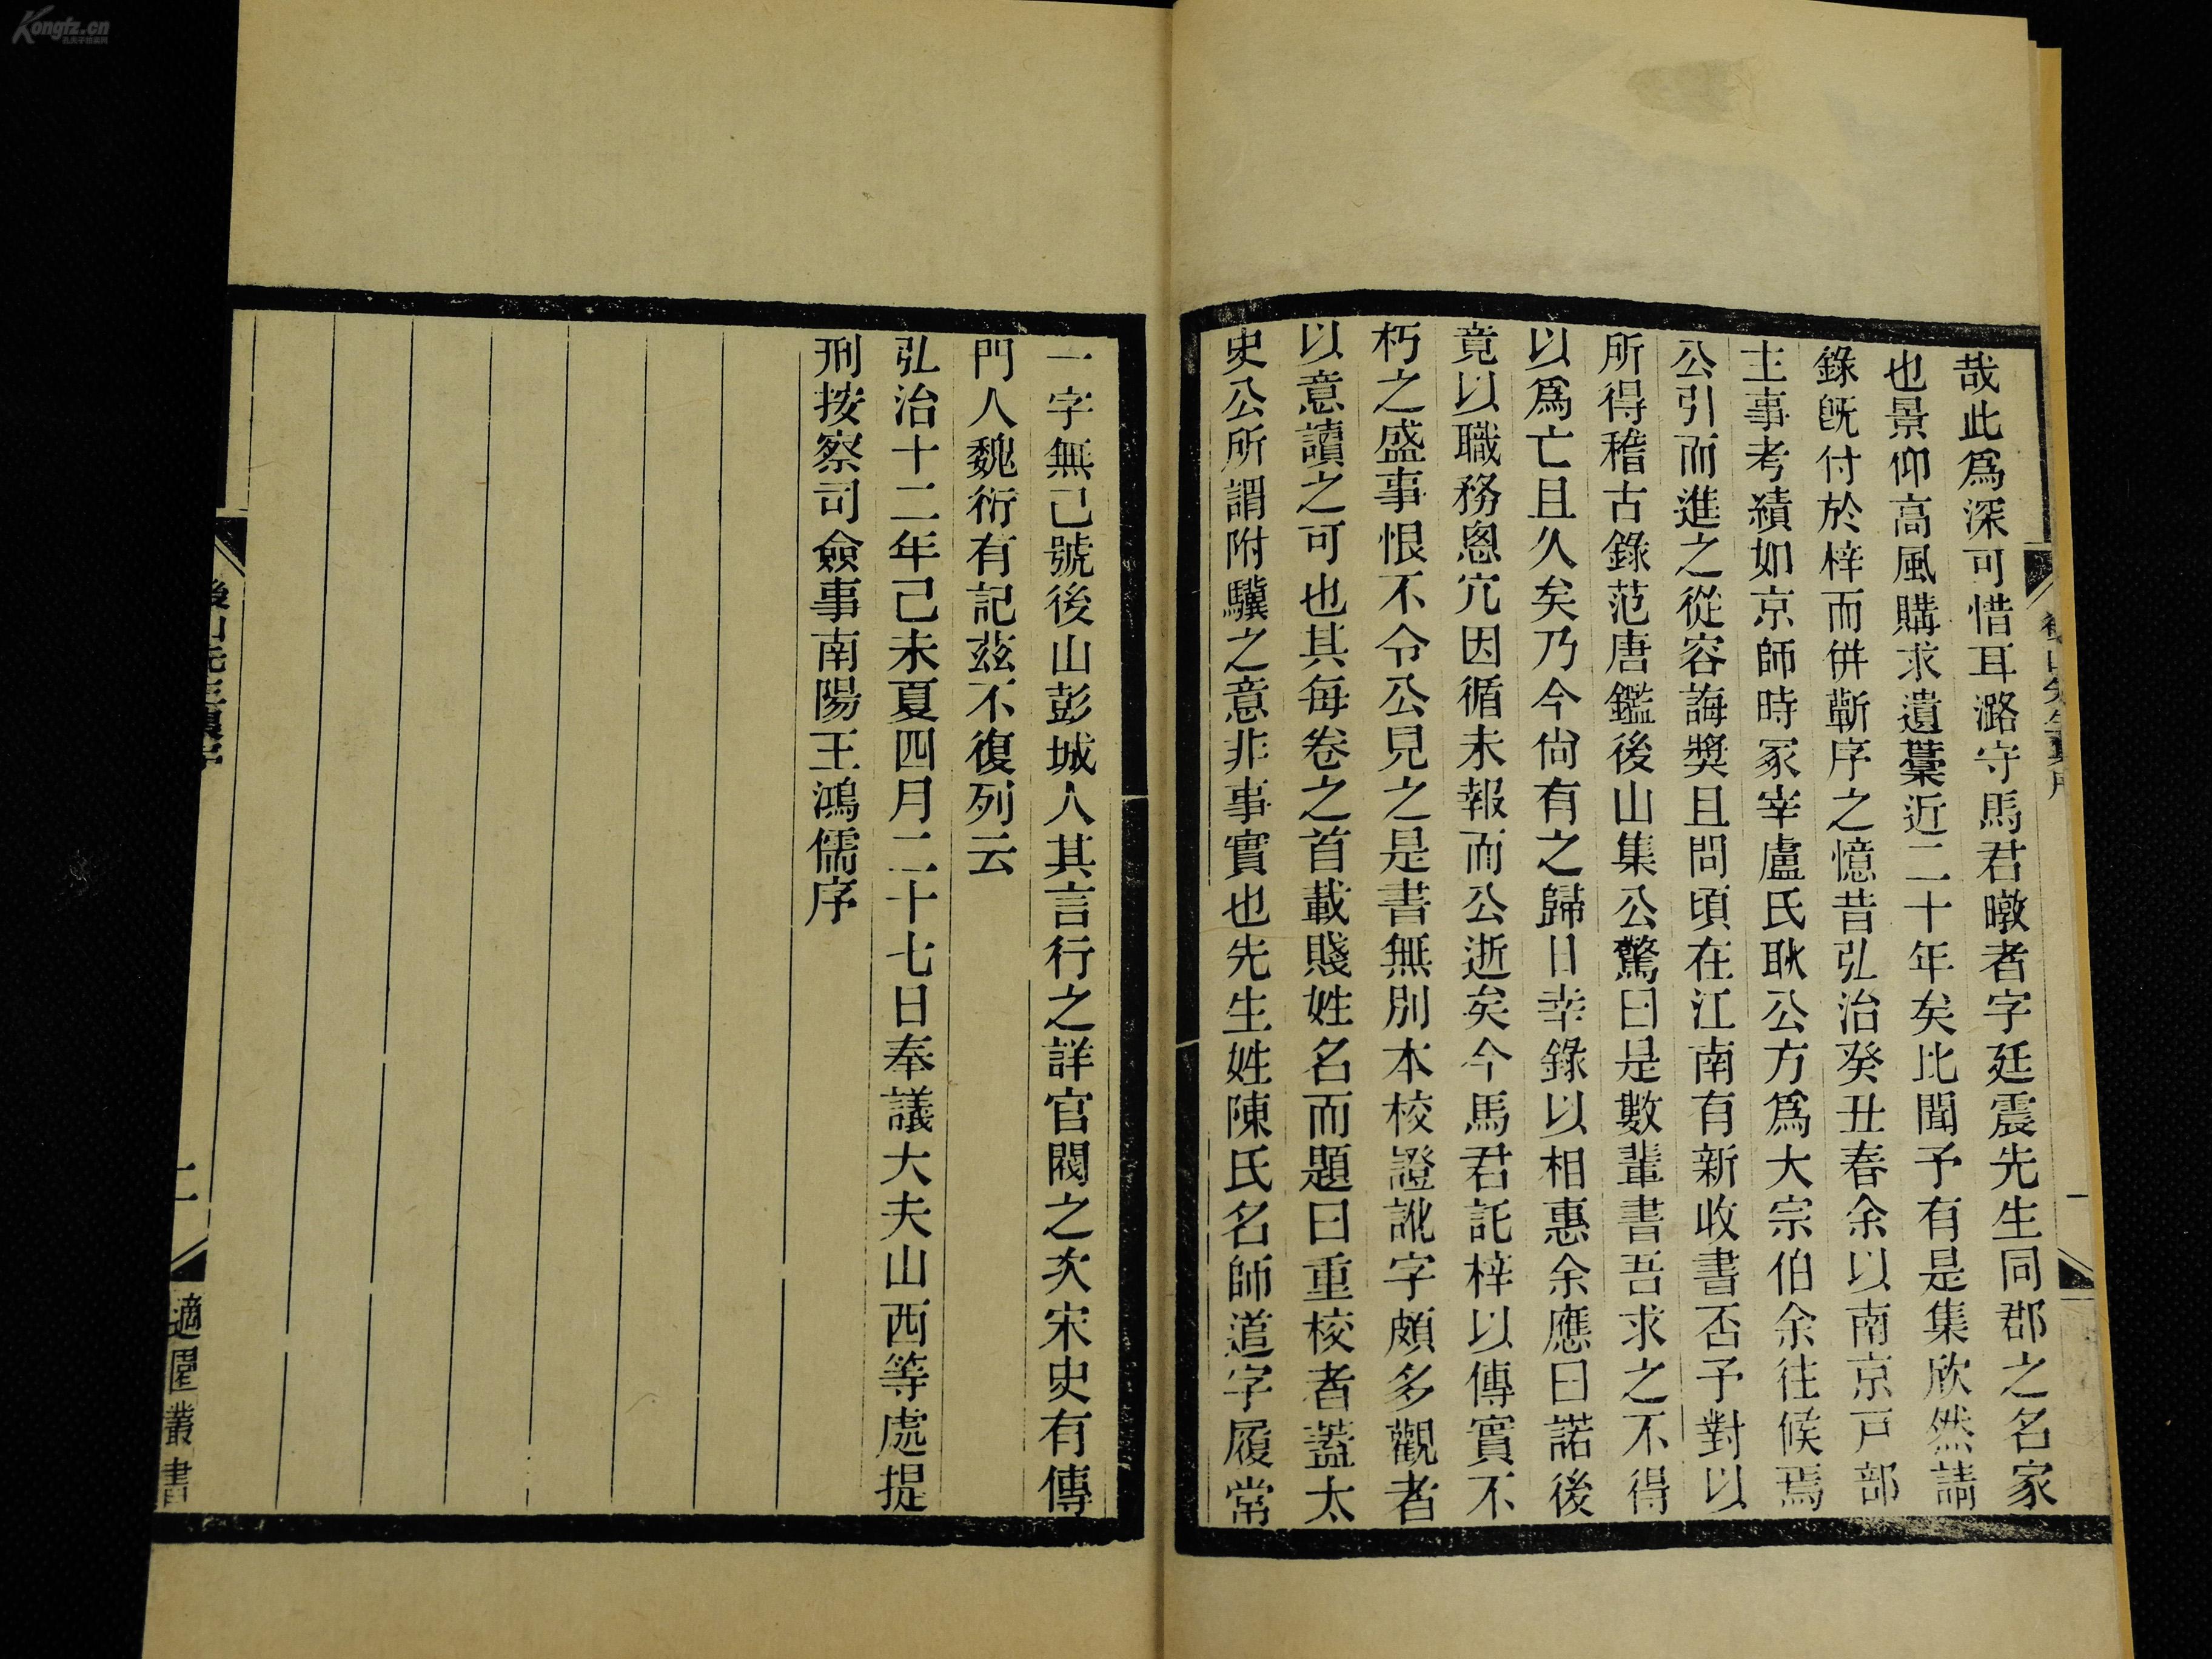 哉此爲深可惜耳潞守馬君暾者字廷震先生同郡之名家
也景仰高風購求遺藁近二十年矣比聞予有是集欣然請
錄旣付於梓而併蘄序之憶昔弘治癸丑春余以南京戸部
主事考績如京師時冢宰盧氏耿公方爲大宗伯余往候焉
公引而進之從容誨獎且問頃在江南有新收書否予對以
所得稽古錄范唐鑑後山集公驚曰是數輩書吾求之不得
以爲亡且久矣乃今尙有之歸日幸錄以相惠余應曰諾後
竟以職務恖冗因循未報而公逝矣今馬君託梓以傳實不
朽之盛事恨不令公見之是書無別本校證訛字頗多觀者
以意讀之可也其每卷之首載賤姓名而題曰重校者蓋太
史公所謂附驥之意非事實也先生姓陳氏名師道字履常
一字無己號後山彭城人其言行之詳官閥之次宋史有傳
門人魏衍有記茲不復列云
弘治十二年己未夏四月二十七日奉議大夫山西等處提
刑按察司僉事南陽王鴻儒序
後山先生集序
一
後山先生集序
二
適園叢書
Kongfz.cn